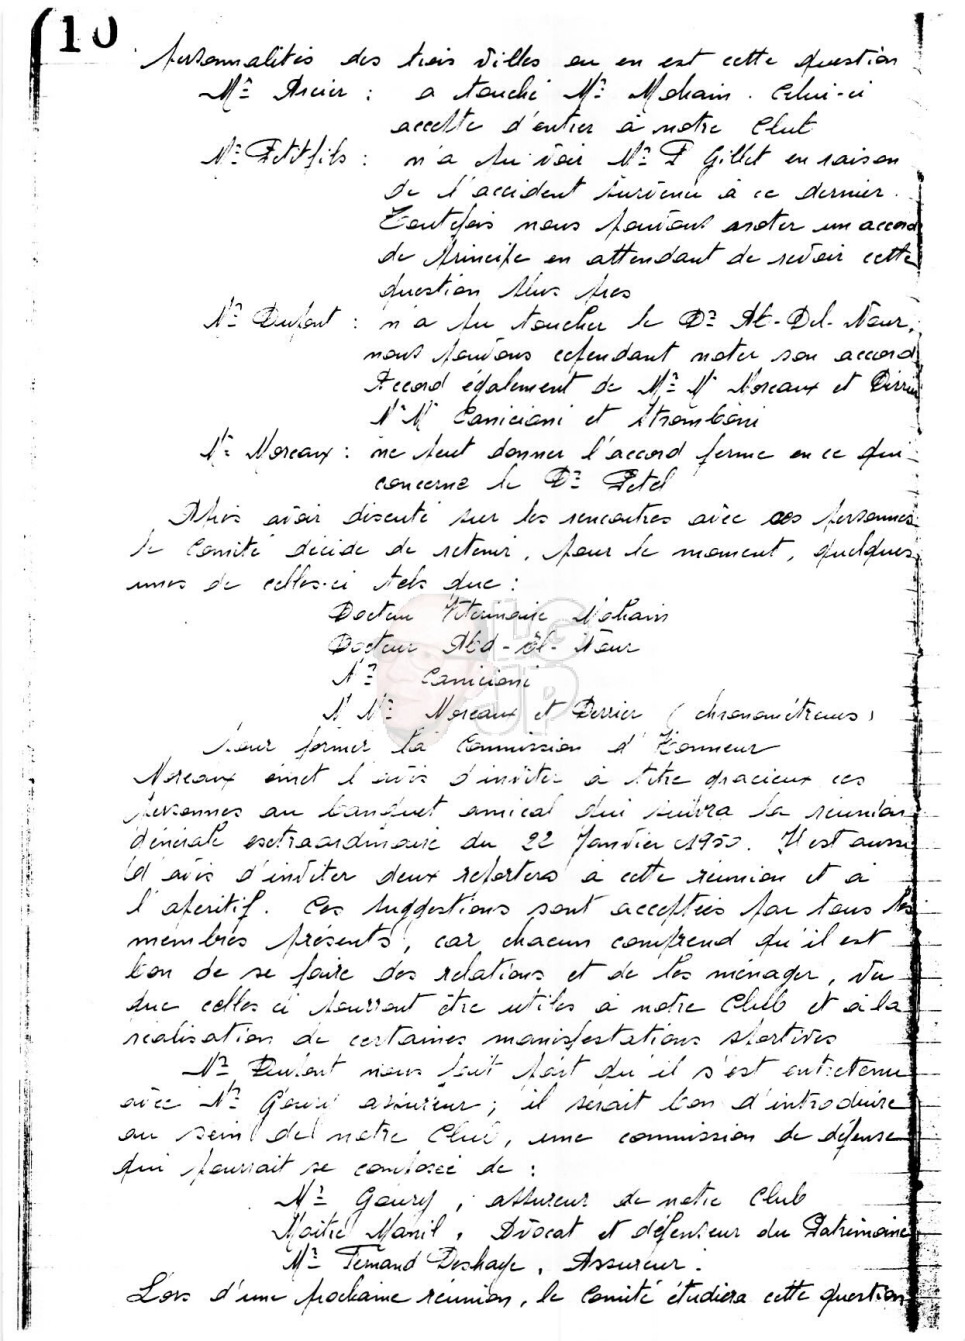 10
personnalités des trois villes ou en est cette question
Mr Ancier : a touché Mr Mohain. Celui-ci
accepte d'entrer à notre Club
Mr Petitfils : n'a pu voir Mr P Gillet en raison
de l'accident survenu à ce dernier.
Toutefois nous pouvons noter un accord
de principe en attendant de revoir cette
question plus près
Mr Dupont : n'a pu toucher le Dr Ab-Del-Nour,
nous pouvons cependant noter son accord
Accord également de Mr Mr Moreaux et
Mr Mr Canicioni et Stromboni
Mr Moreaux : ne peut donner l'accord ferme en ce qui
concerne le Dr Petel
Après avoir discuté sur les rencontres avec ces personnes
le Comité décide de retenir, pour le moment, quelques
unes de celles-ci tels que :
Docteur Vétérinaire Mohain
Docteur Abd-el-Nour
Mr Canicioni
M Mr Moreaux et Derrier (chronométreurs)
LG
JP
pour former la Commission d'Honneur
Moreaux émet l'avis d'inviter à titre gracieux ces
personnes au banquet amical qui suivra la réunion
Générale extraordinaire du 22 Janvier 1950. Il est aussi
d'avis d'inviter deux reporters à cette réunion et à
l'apéritif. Ces suggestions sont acceptées par tous les
membres présents, car chacun comprend qu'il est
bon de se faire des relations et de les ménager, vu
que celles ci pourront être utiles à notre Club et à la
réalisation de certaines manifestations sportives
Mr Dupont nous fait part qu'il s'est entretenu
avec Mr Goury assureur; il serait bon d'introduire
au sein de notre Club, une commission de défense
qui pourrait se composée de :
Mr Goury, assureur de notre Club
Maître Manil, Avocat et défenseur du Patrimoine
Mr Fernand Deshaye, Assureur.
Lors d'une prochaine réunion, le Comité étudiera cette question